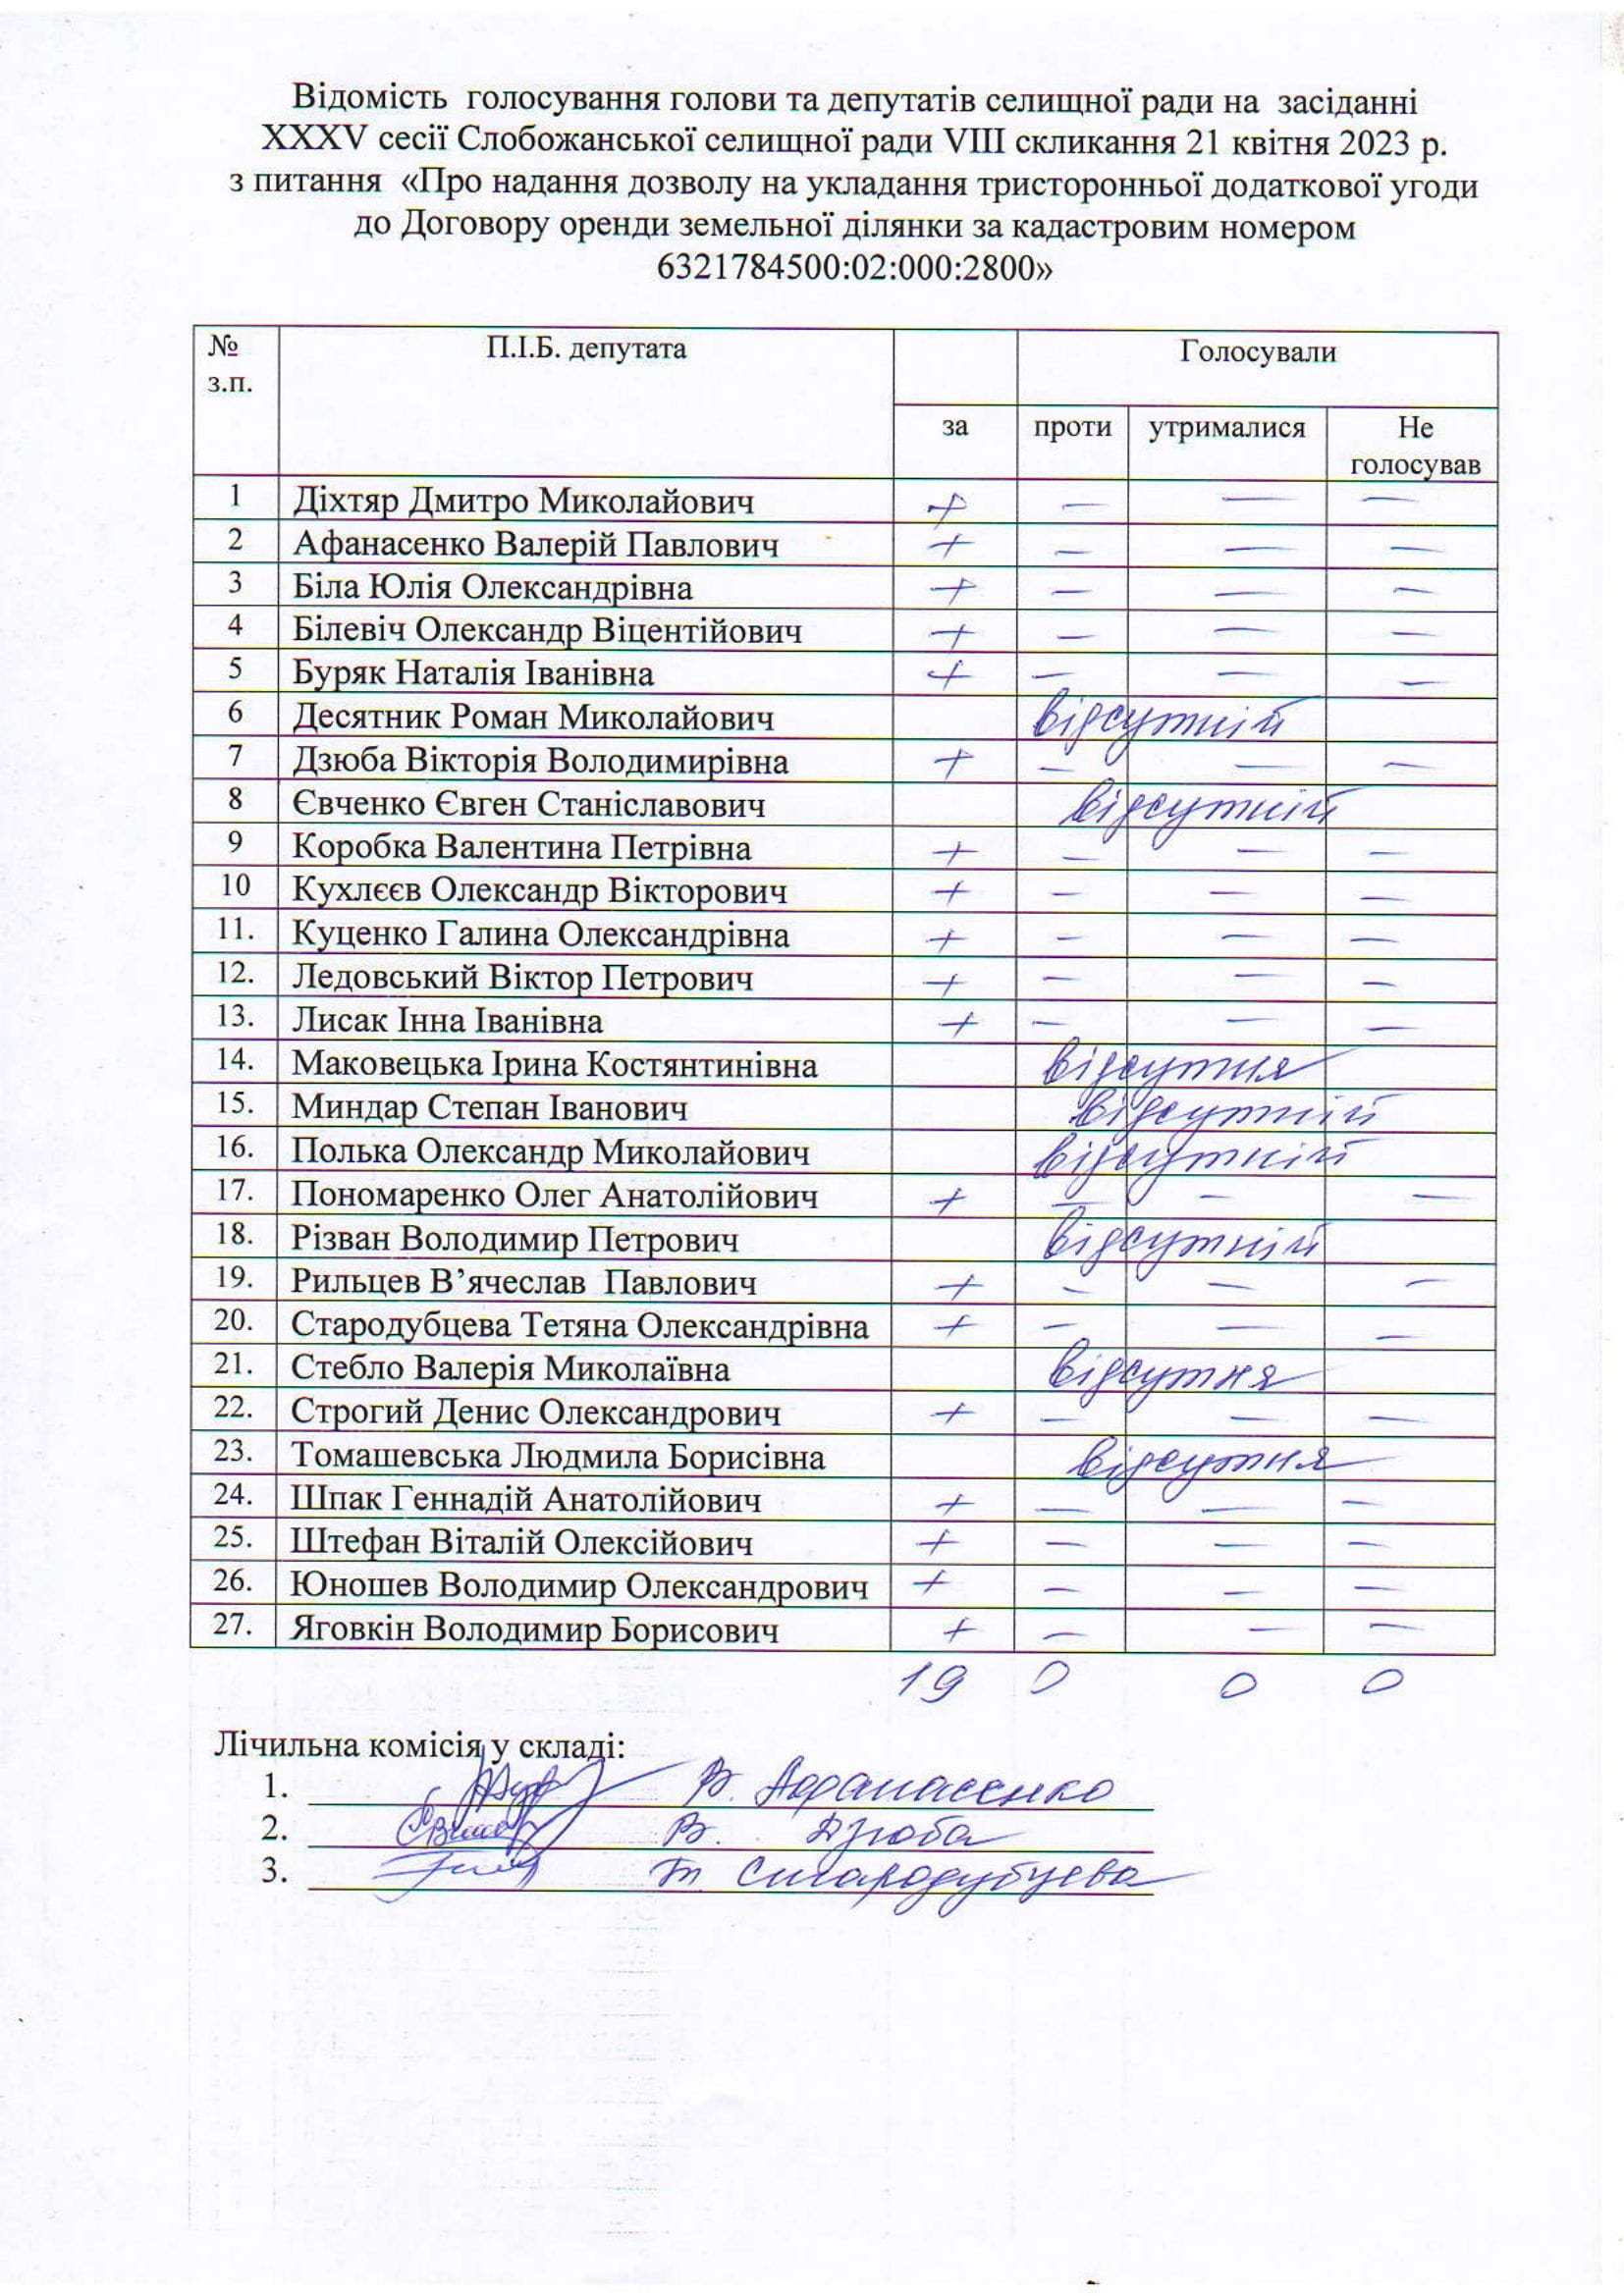 Відомість голосування голови та депутатів селищної ради на засіданні
XXXV сесії Слобожанської селищної ради VIII скликання 21 квітня 2023 р.
з питання «Про надання дозволу на укладання тристоронньої додаткової угоди
до Договору оренди земельної ділянки за кадастровим номером
6321784500:02:000:2800»
№ з.п. П.І.Б. депутата Голосували
за проти утрималися Не голосував
1 Діхтяр Дмитро Миколайович + — — —
2 Афанасенко Валерій Павлович + — — —
3 Біла Юлія Олександрівна + — — —
4 Білевіч Олександр Віцентійович + — — —
5 Буряк Наталія Іванівна + — — —
6 Десятник Роман Миколайович відсутній
7 Дзюба Вікторія Володимирівна + — — —
8 Євченко Євген Станіславович відсутній
9 Коробка Валентина Петрівна + — — —
10 Кухлєєв Олександр Вікторович + — — —
11. Куценко Галина Олександрівна + — — —
12. Ледовський Віктор Петрович + — — —
13. Лисак Інна Іванівна + — — —
14. Маковецька Ірина Костянтинівна відсутня
15. Миндар Степан Іванович відсутній
16. Полька Олександр Миколайович відсутній
17. Пономаренко Олег Анатолійович + — — —
18. Різван Володимир Петрович відсутній
19. Рильцев В’ячеслав Павлович + — — —
20. Стародубцева Тетяна Олександрівна + — — —
21. Стебло Валерія Миколаївна відсутня
22. Строгий Денис Олександрович + — — —
23. Томашевська Людмила Борисівна відсутня
24. Шпак Геннадій Анатолійович + — — —
25. Штефан Віталій Олексійович + — — —
26. Юношев Володимир Олександрович + — — —
27. Яговкін Володимир Борисович + — — —
19 0 0 0
Лічильна комісія у складі:
1. В. Афанасенко
2. В. Дзюба
3. Т Стародубцева